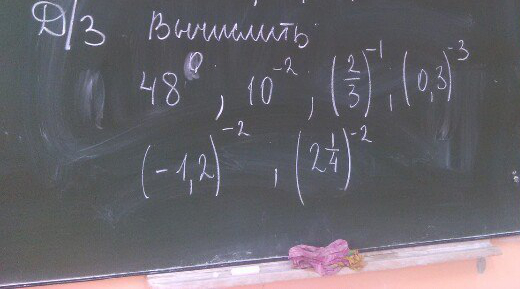 Д/З Вычислить
48⁰, 10⁻², (2/3)⁻¹, (0,3)⁻³
(-1,2)⁻², (2 1/4)⁻²